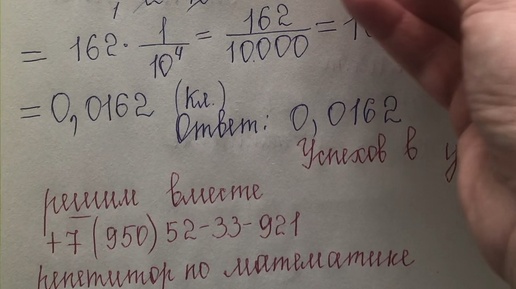 = 162 · 1/10⁴ = 162/10000 =
= 0,0162 (Кл.)
Ответ: 0,0162
Успехов в
решим вместе
+7 (950) 52-33-921
репетитор по математике